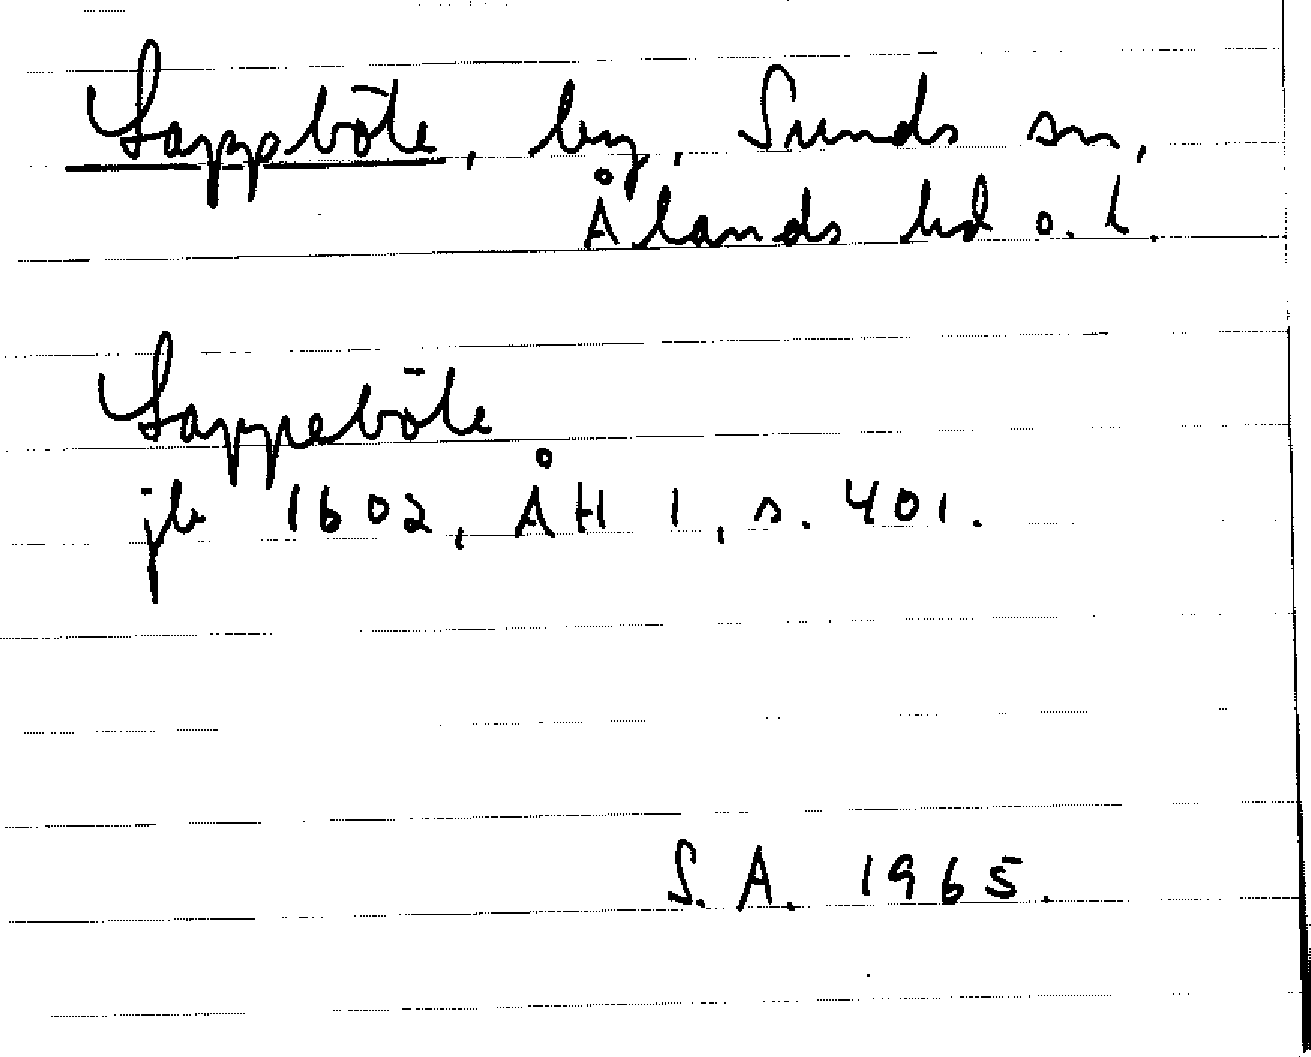 Lappböle, by, Sunds sn,
Ålands hd o. l.
Lappeböle
jb 1602, ÅH 1, s. 401.
S. A. 1965.